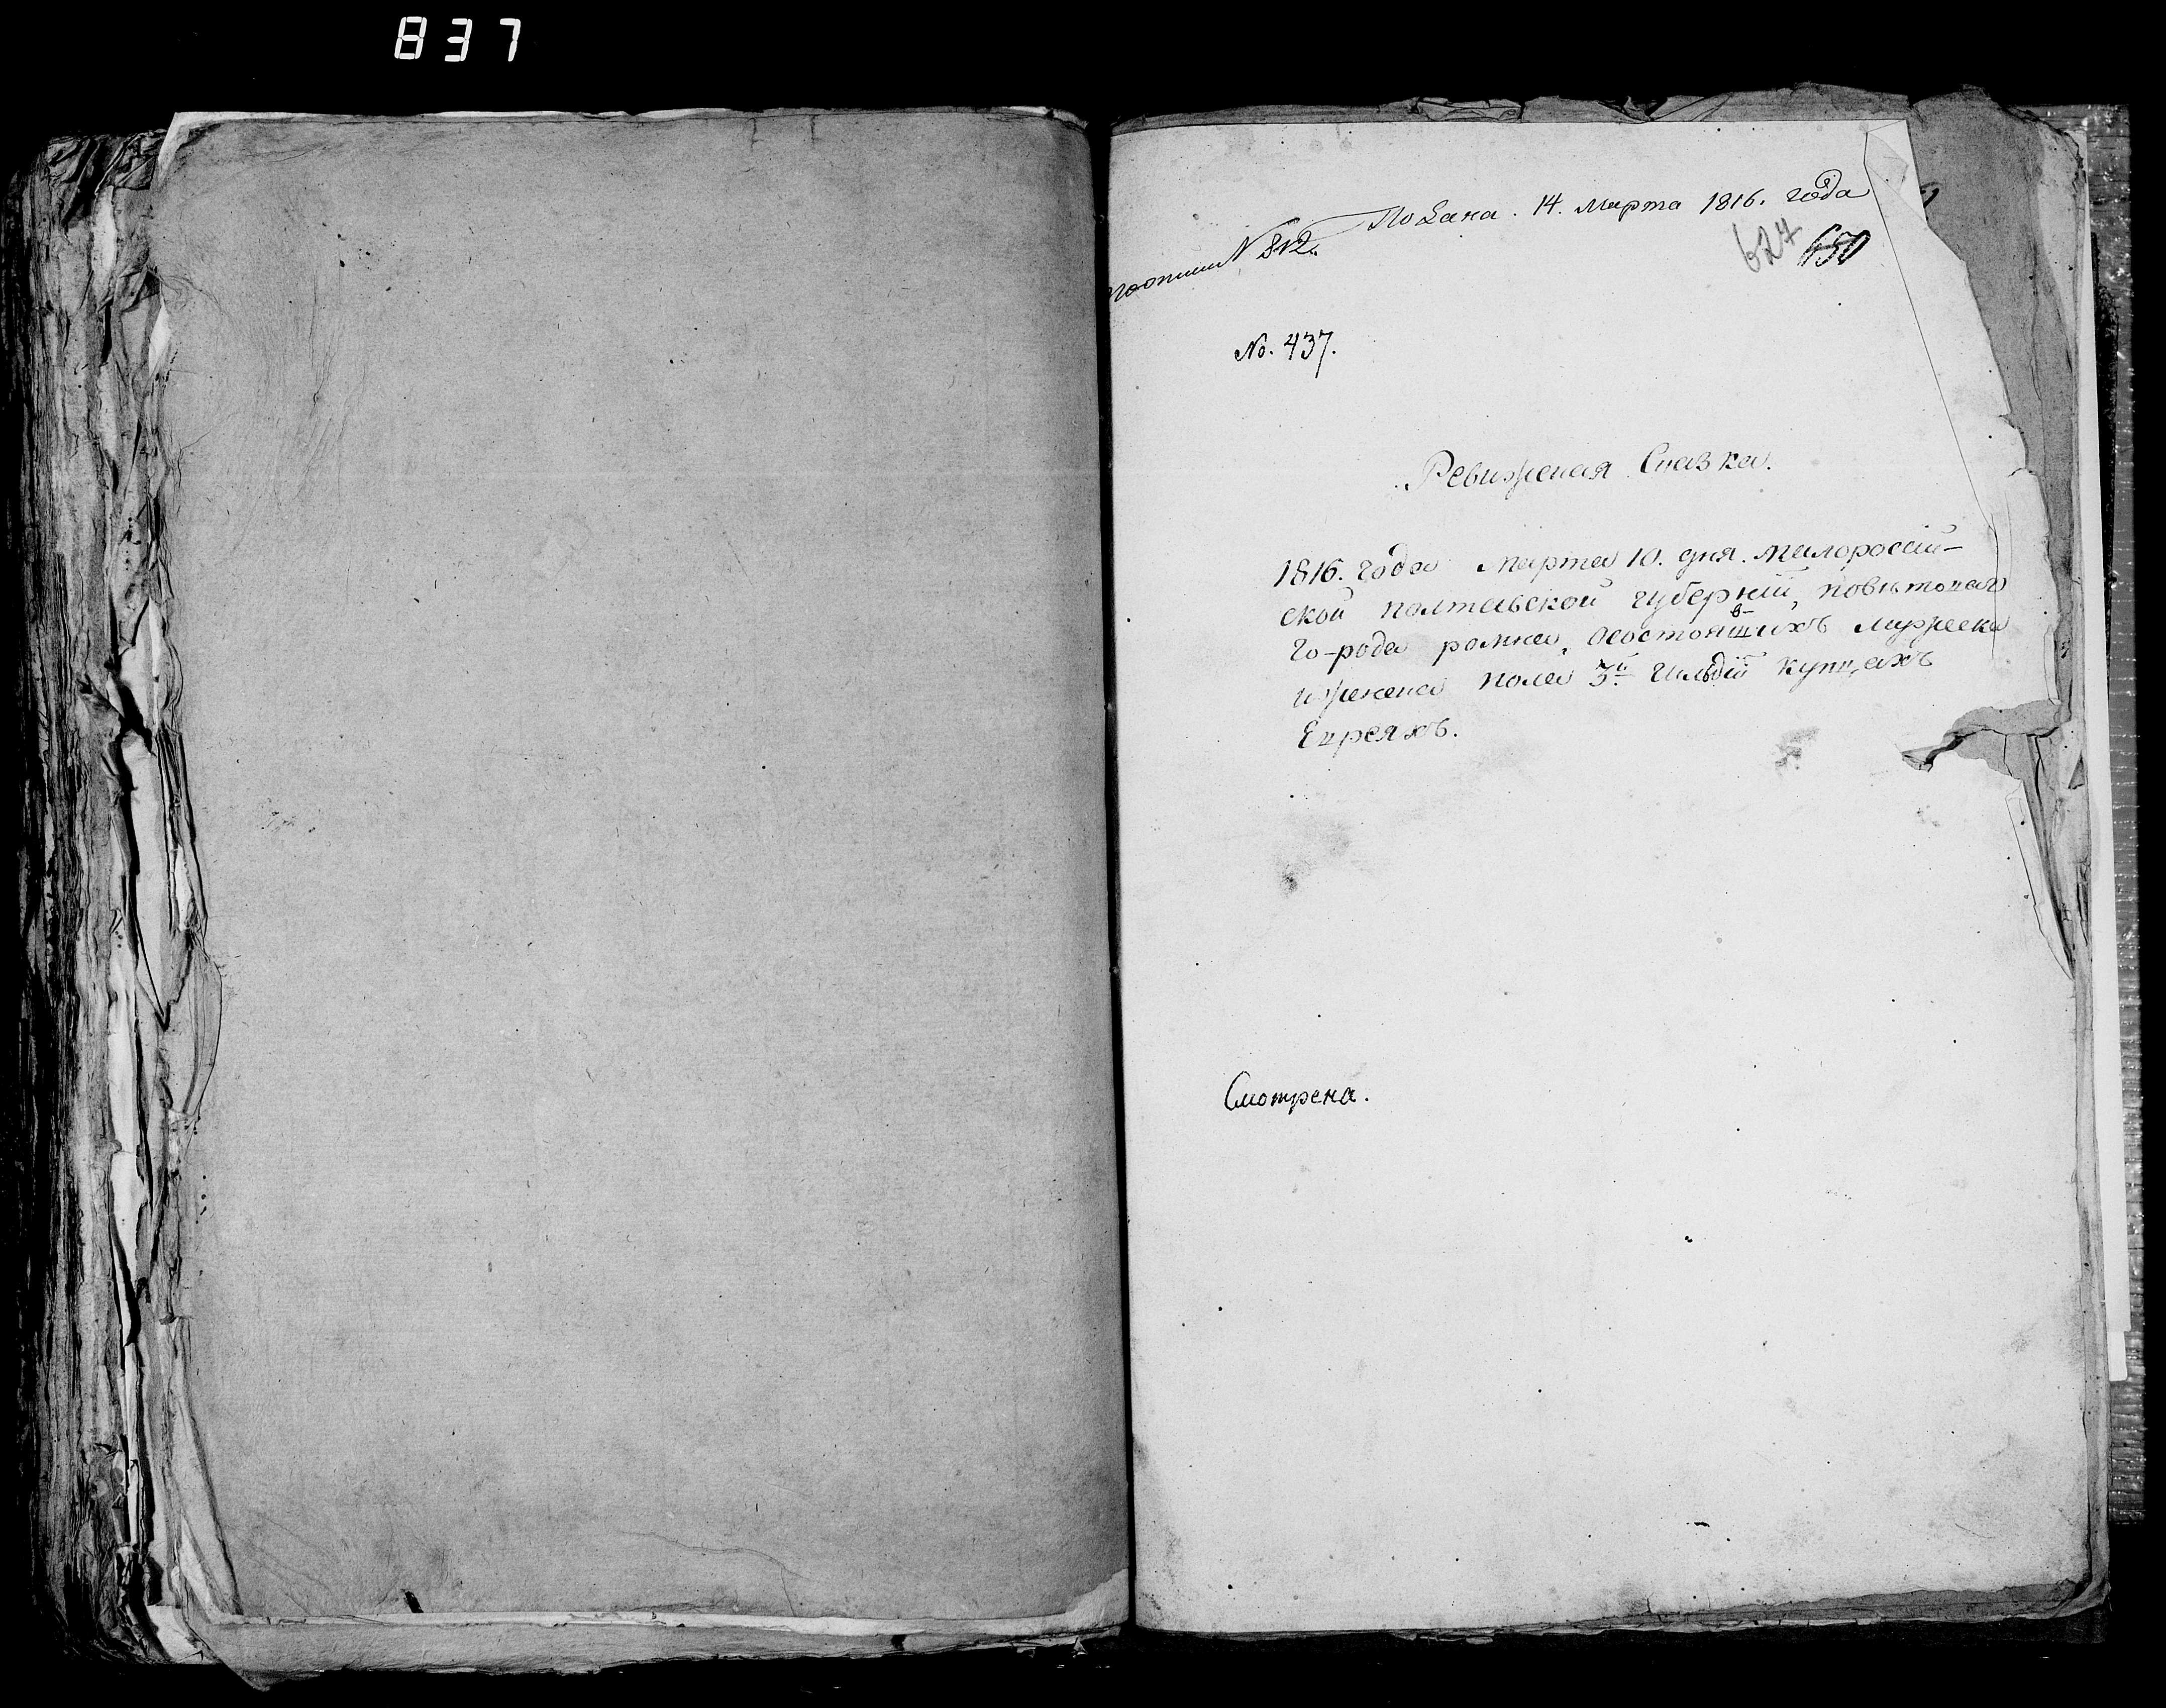 837
Подана. 14. марта 1816. года
N 812.
627 650
No. 437.
Ревижская Сказка.
1816. года марта 10. дня. Малороссій-
ской полтавской губерніи, повѣтоваго
го-рода ромна, осостоящихъ мужеска
ижѣнска пола 3й. гильдіи купцахъ
Евреяхъ.
Смотрена.